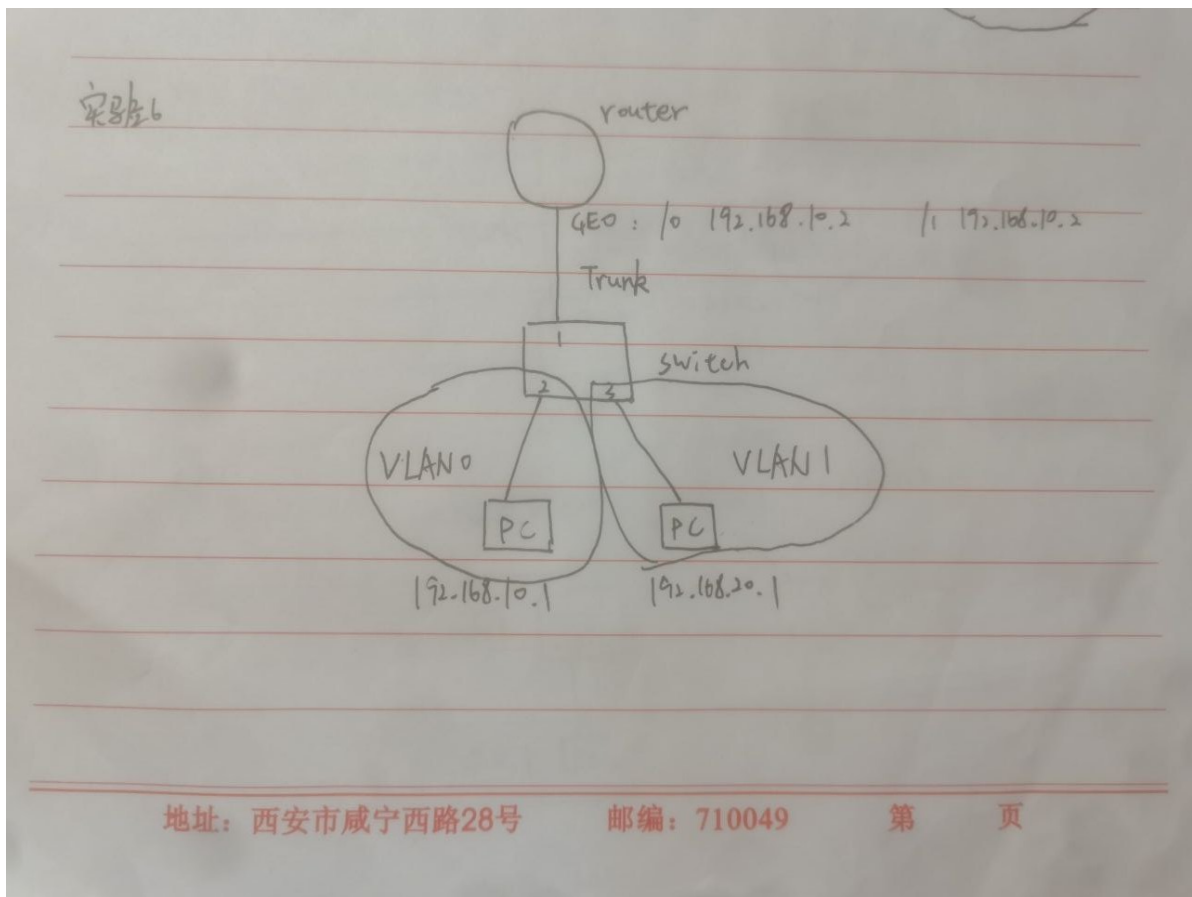 实验6
router
GE0 : /0 192.168.10.2 /1 192.168.10.2
Trunk
1
switch
2 3
VLAN0 VLAN1
PC PC
192.168.10.1 192.168.20.1
地址：西安市咸宁西路28号 邮编：710049 第 页